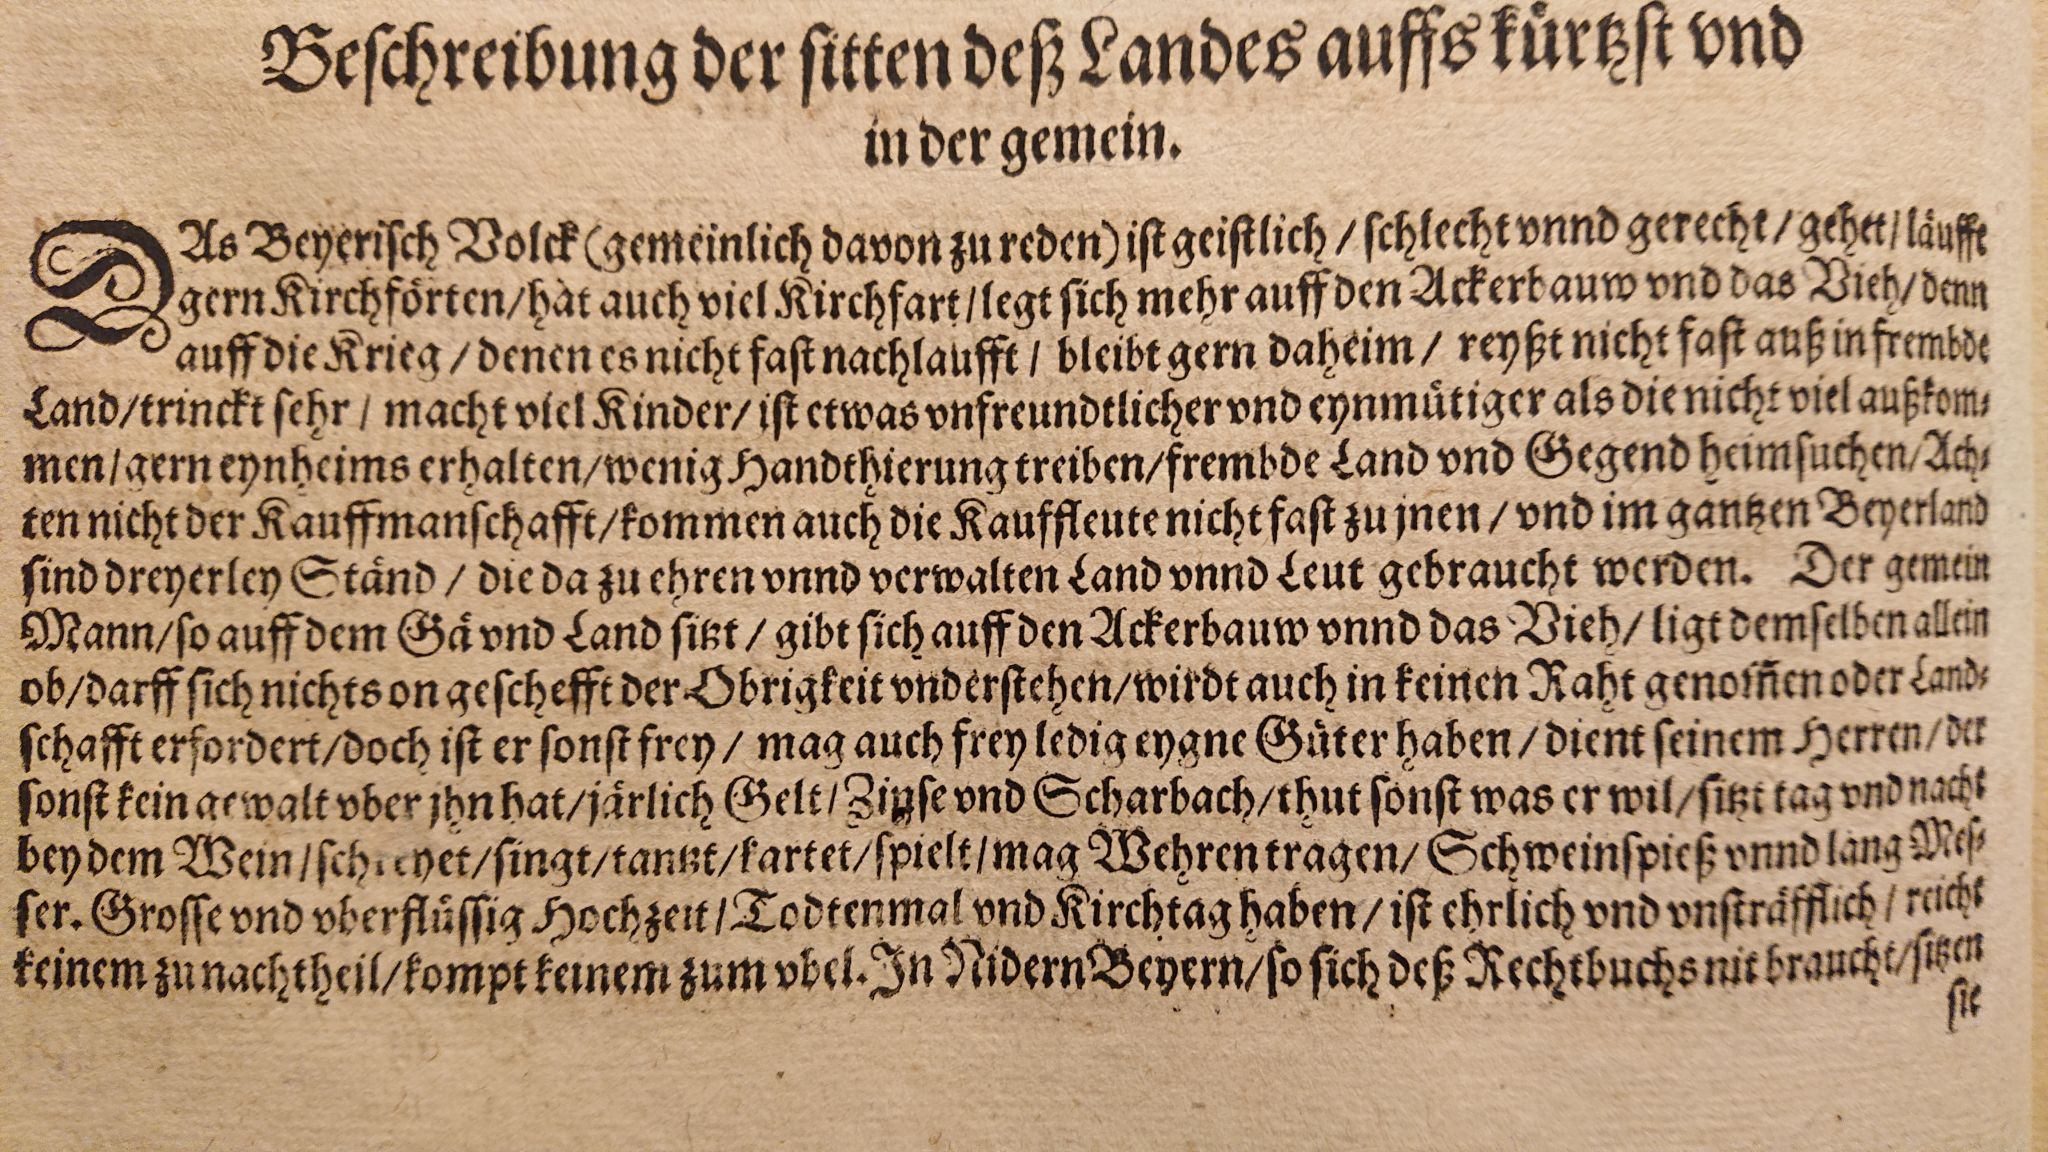 Beſchreibung der ſitten deß Landes auffs kuͤrtzſt vnd
in der gemein.
DAs Beyeriſch Volck (gemeinlich davon zu reden) iſt geiſtlich / ſchlecht vnnd gerecht / gehet / laͤufft
gern Kirchfoͤrten / hat auch viel Kirchfart / legt ſich mehr auff den Ackerbauw vnd das Vieh / denn
auff die Krieg / denen es nicht faſt nachlaufft / bleibt gern daheim / reyßt nicht faſt auß in frembde
Land / trinckt ſehr / macht viel Kinder / iſt etwas vnfreundtlicher vnd eynmuͤtiger als die nicht viel außkom⸗
men / gern eynheims erhalten / wenig Handthierung treiben / frembde Land vnd Gegend heimſuchen / Ach⸗
ten nicht der Kauffmanſchafft / kommen auch die Kauffleute nicht faſt zu jnen / vnd im gantzen Beyerland
ſind dreyerley Staͤnd / die da zu ehren vnnd verwalten Land vnnd Leut gebraucht werden. Der gemein
Mann / ſo auff dem Gaͤ vnd Land ſitzt / gibt ſich auff den Ackerbauw vnnd das Vieh / ligt demſelben allein
ob / darff ſich nichts on geſchefft der Obrigkeit vnderſtehen / wirdt auch in keinen Raht genom̃en oder Land⸗
ſchafft erfordert / doch iſt er ſonſt frey / mag auch frey ledig eygne Guͤter haben / dient ſeinem Herren / der
ſonſt kein gewalt vber jhn hat / jaͤrlich Gelt / Zinſe vnd Scharbach / thut ſonſt was er wil / ſitzt tag vnd nacht
bey dem Wein / ſchreyet / ſingt / tantzt / kartet / ſpielt / mag Wehren tragen / Schweinſpieß vnnd lang Meſ⸗
ſer. Groſſe vnd vberfluͤſſig Hochzeit / Todtenmal vnd Kirchtag haben / iſt ehrlich vnd vnſtraͤfflich / reicht
keinem zu nachtheil / kompt keinem zum vbel. In Nidern Beyern / ſo ſich deß Rechtbuchs nit braucht / ſitzen
ſie